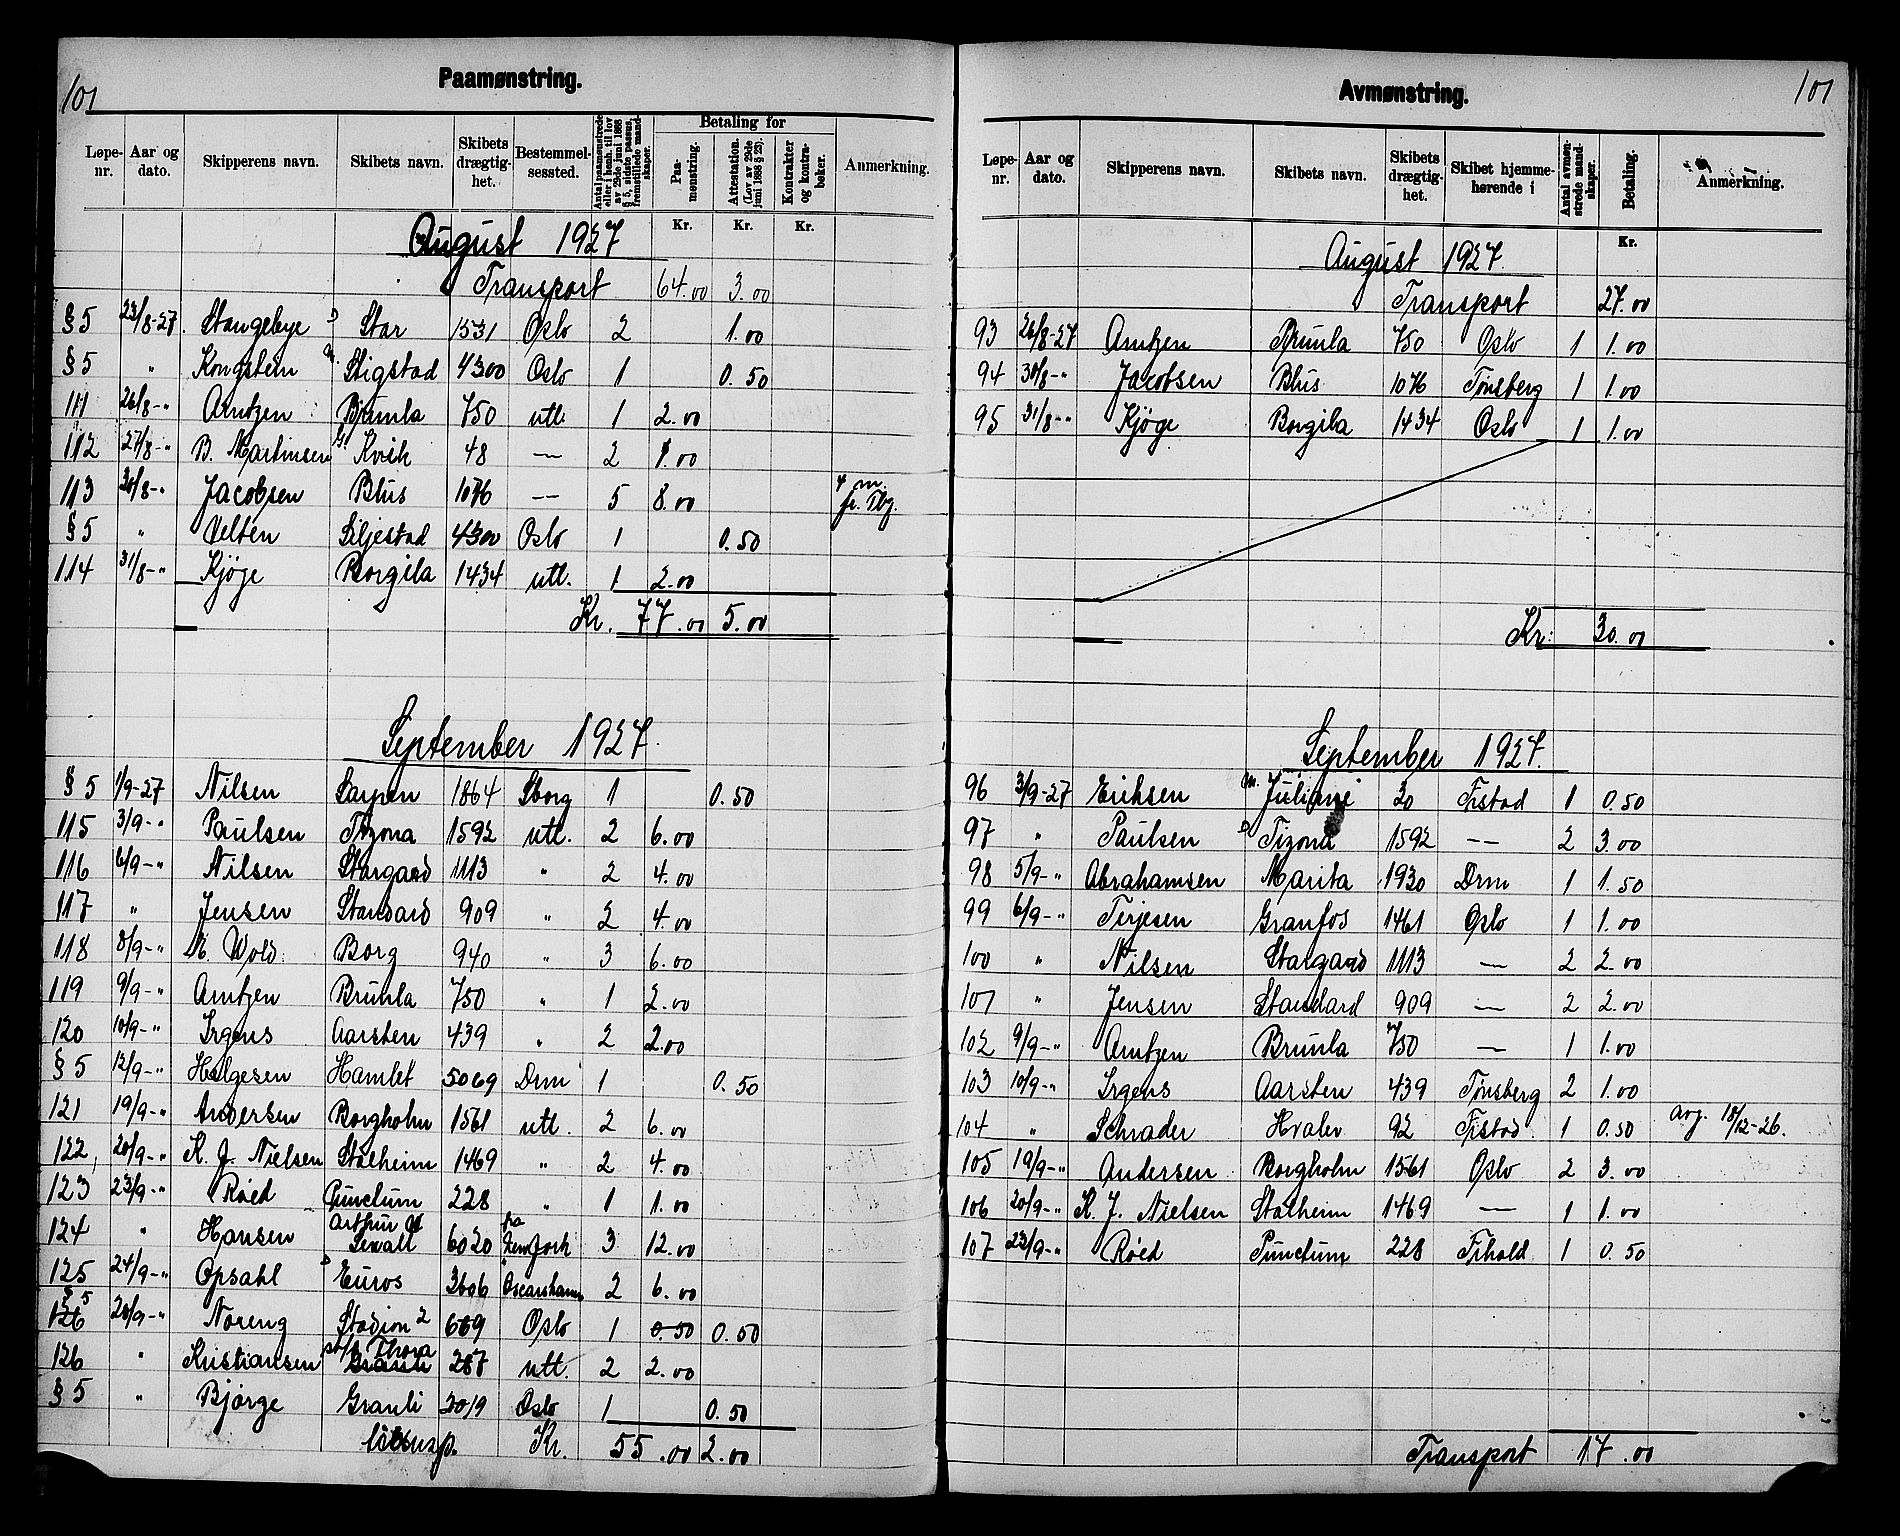 101
Paamønstring.
Løpe-nr. Aar og dato. Skipperens navn. Skibets navn. Skibets drægtighet. Bestemmelsessted. Antal paamønstrede eller i henh. til lov av 29de juni 1888 § 5, sidste passus, fremstillede mandskaper. Betaling for Paamønstring. Attestation. (Lov av 29de juni 1888 § 23). Kontrakter og kontrabøker. Anmerkning.
Kr. Kr. Kr.
August 1927
Transport 64.00 3.00
§ 5 23/8-27. Stangebye D Star 1531 Oslo 2 1.00
§ 5 " Kongstein m. Stigstad 4300 Oslo 1 0.50
111 26/8-" Arntzen Brunla 750 utl. 1 2.00
112 27/8-" B. Martinsen Kvik 48 — 2 1.00
113 30/8-" Jacobsen Blus 1076 — 5 8.00 4 m. fr. Tbg.
§ 5 " Velten Siljestad 4300 Oslo 1 0.50
114 31/8-" Kjøge Borgila 1434 utl. 1 2.00
Kr. 77.00 5.00
September 1927.
§ 5 1/9-27 Nilsen Sarpen 1864 Sborg 1 0.50
115 3/9-" Paulsen Tizona 1592 utl. 2 6.00
116 6/9-" Nilsen Stargard 1113 " 2 4.00
117 " Jensen Standard 909 " 2 4.00
118 8/9-" M. Wold. Borg 940 " 3 6.00
119 9/9-" Arntzen Brunla 750 " 1 2.00
120 10/9-" Irgens Aarsten 439 " 2 2.00
§ 5 12/9-" Helgesen Hamlet 5069 Drm 1 0.50
121 19/9-" Andersen Borgholm 1561 utl. 2 6.00
122 20/9-" K. J. Nielsen Stalheim 1469 " 2 4.00
123 23/9-" Røed Punctum 228 " 1 1.00
124 " Hansen Arthur Sewall 6020 fra New York 3 12.00
125 24/9-" Opsahl D Euros 3606 Oscarshamn 2 6.00
126 § 5 28/9-" Noreng Stadion 2 669 Oslo 1 0.50 0.50
126 " Kristiansen Thora 287 utl. 2 2.00
§ 5 " Bjørge Granli 2019 Oslo 1 0.50
Kr. 55.00 2.00
101
Avmønstring.
Løpe-nr. Aar og dato. Skipperens navn. Skibets navn. Skibets drægtighet. Skibet hjemmehørende i Antal avmønstrede mandskaper. Betaling. Anmerkning.
Kr.
August 1927.
Transport 27.00
93 26/8-27 Arntzen Brunla 750 Oslo 1 1.00
94 30/8-" Jacobsen Blus 1076 Tønsberg 1 1.00
95 31/8-" Kjøge Borgila 1434 Oslo 1 1.00
Kr: 30.00
September 1927.
96 3/9-27 Eriksen m. Juliane 20 Frstad 1 0.50
97 " Paulsen D Tizona 1592 — 2 3.00
98 5/9-" Abrahamsen Marita 1930 Drm 1 1.50
99 6/9-" Terjesen Granfos 1461 Oslo 1 1.00
100 " Nilsen Stargard 1113 — 2 2.00
101 " Jensen Standard 909 — 2 2.00
102 9/9-" Arntzen Brunla 750 — 1 1.00
103 10/9-" Irgens Aarsten 439 Tønsberg 2 1.00
104 " Schrader Hvaler 92 Frstad 1 0.50 avg. 18/12-26.
105 19/9-" Andersen Borgholm 1561 Oslo 2 3.00
106 20/9-" K. J. Nielsen Stalheim 1469 — 1 1.00
107 23/9-" Røed Punctum 228 Frhald 1 0.50
Transport 17.00